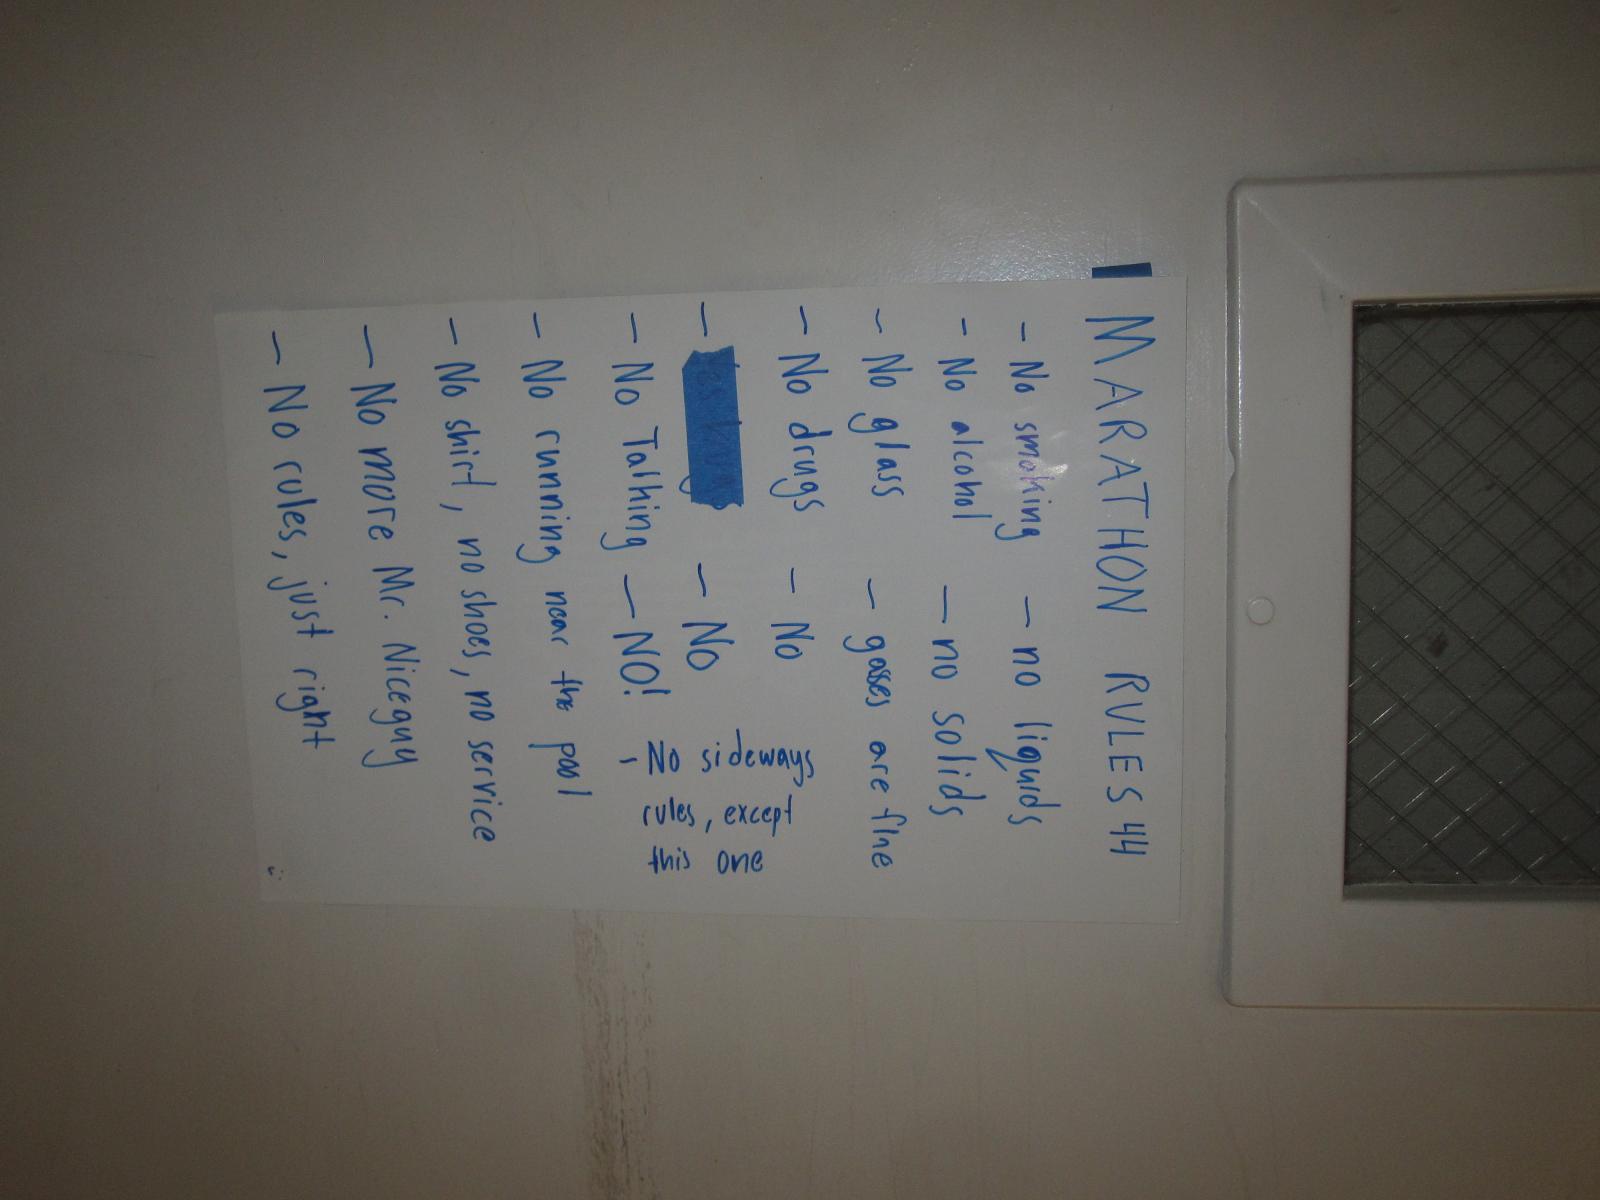 MARATHON RULES 44
- No smoking - no liquids
- No alcohol - no solids
- No glass - gasses are fine
- No drugs - No
- - No
- No Talking - NO!
- No sideways
rules, except
this one
- No running near the pool
- No shirt, no shoes, no service
- No more Mr. Niceguy
- No rules, just right
:)